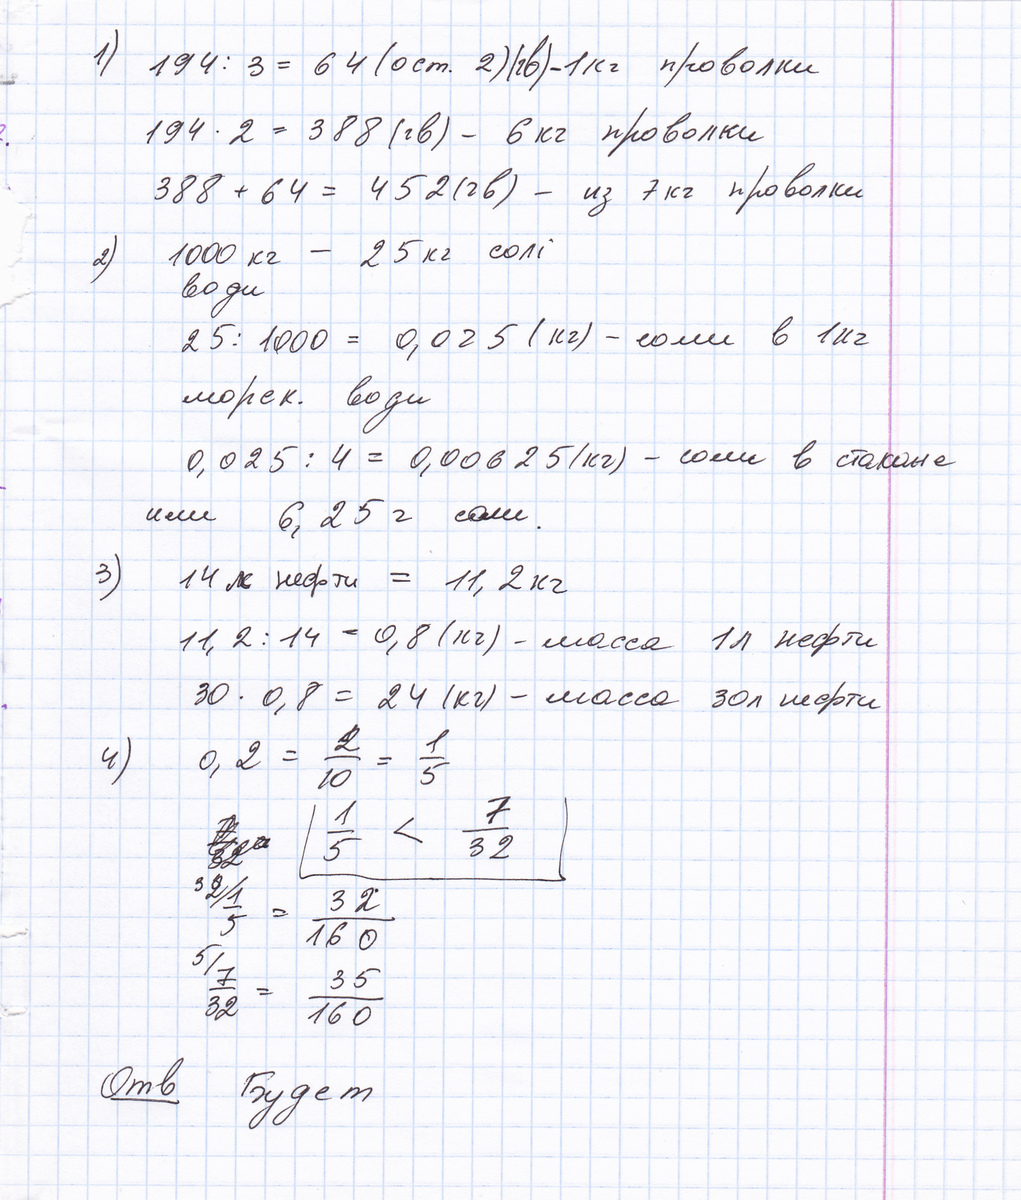 1) 194 : 3 = 64 (ост. 2) (гв) - 1 кг проволки
194 · 2 = 388 (гв) - 6 кг проволки
388 + 64 = 452 (гв) - из 7 кг проволки
2) 1000 кг - 25 кг солі
води
25 : 1000 = 0,025 (кг) - соли в 1 кг
морск. води
0,025 : 4 = 0,00625 (кг) - соли в стакане
или 6,25 г соли.
3) 14 л нефти = 11,2 кг
11,2 : 14 = 0,8 (кг) - масса 1 л нефти
30 · 0,8 = 24 (кг) - масса 30 л нефти
4) 0,2 = 2/10 = 1/5
1/5 < 7/32
32/ 1/5 = 32/160
5/ 7/32 = 35/160
Отв Будет